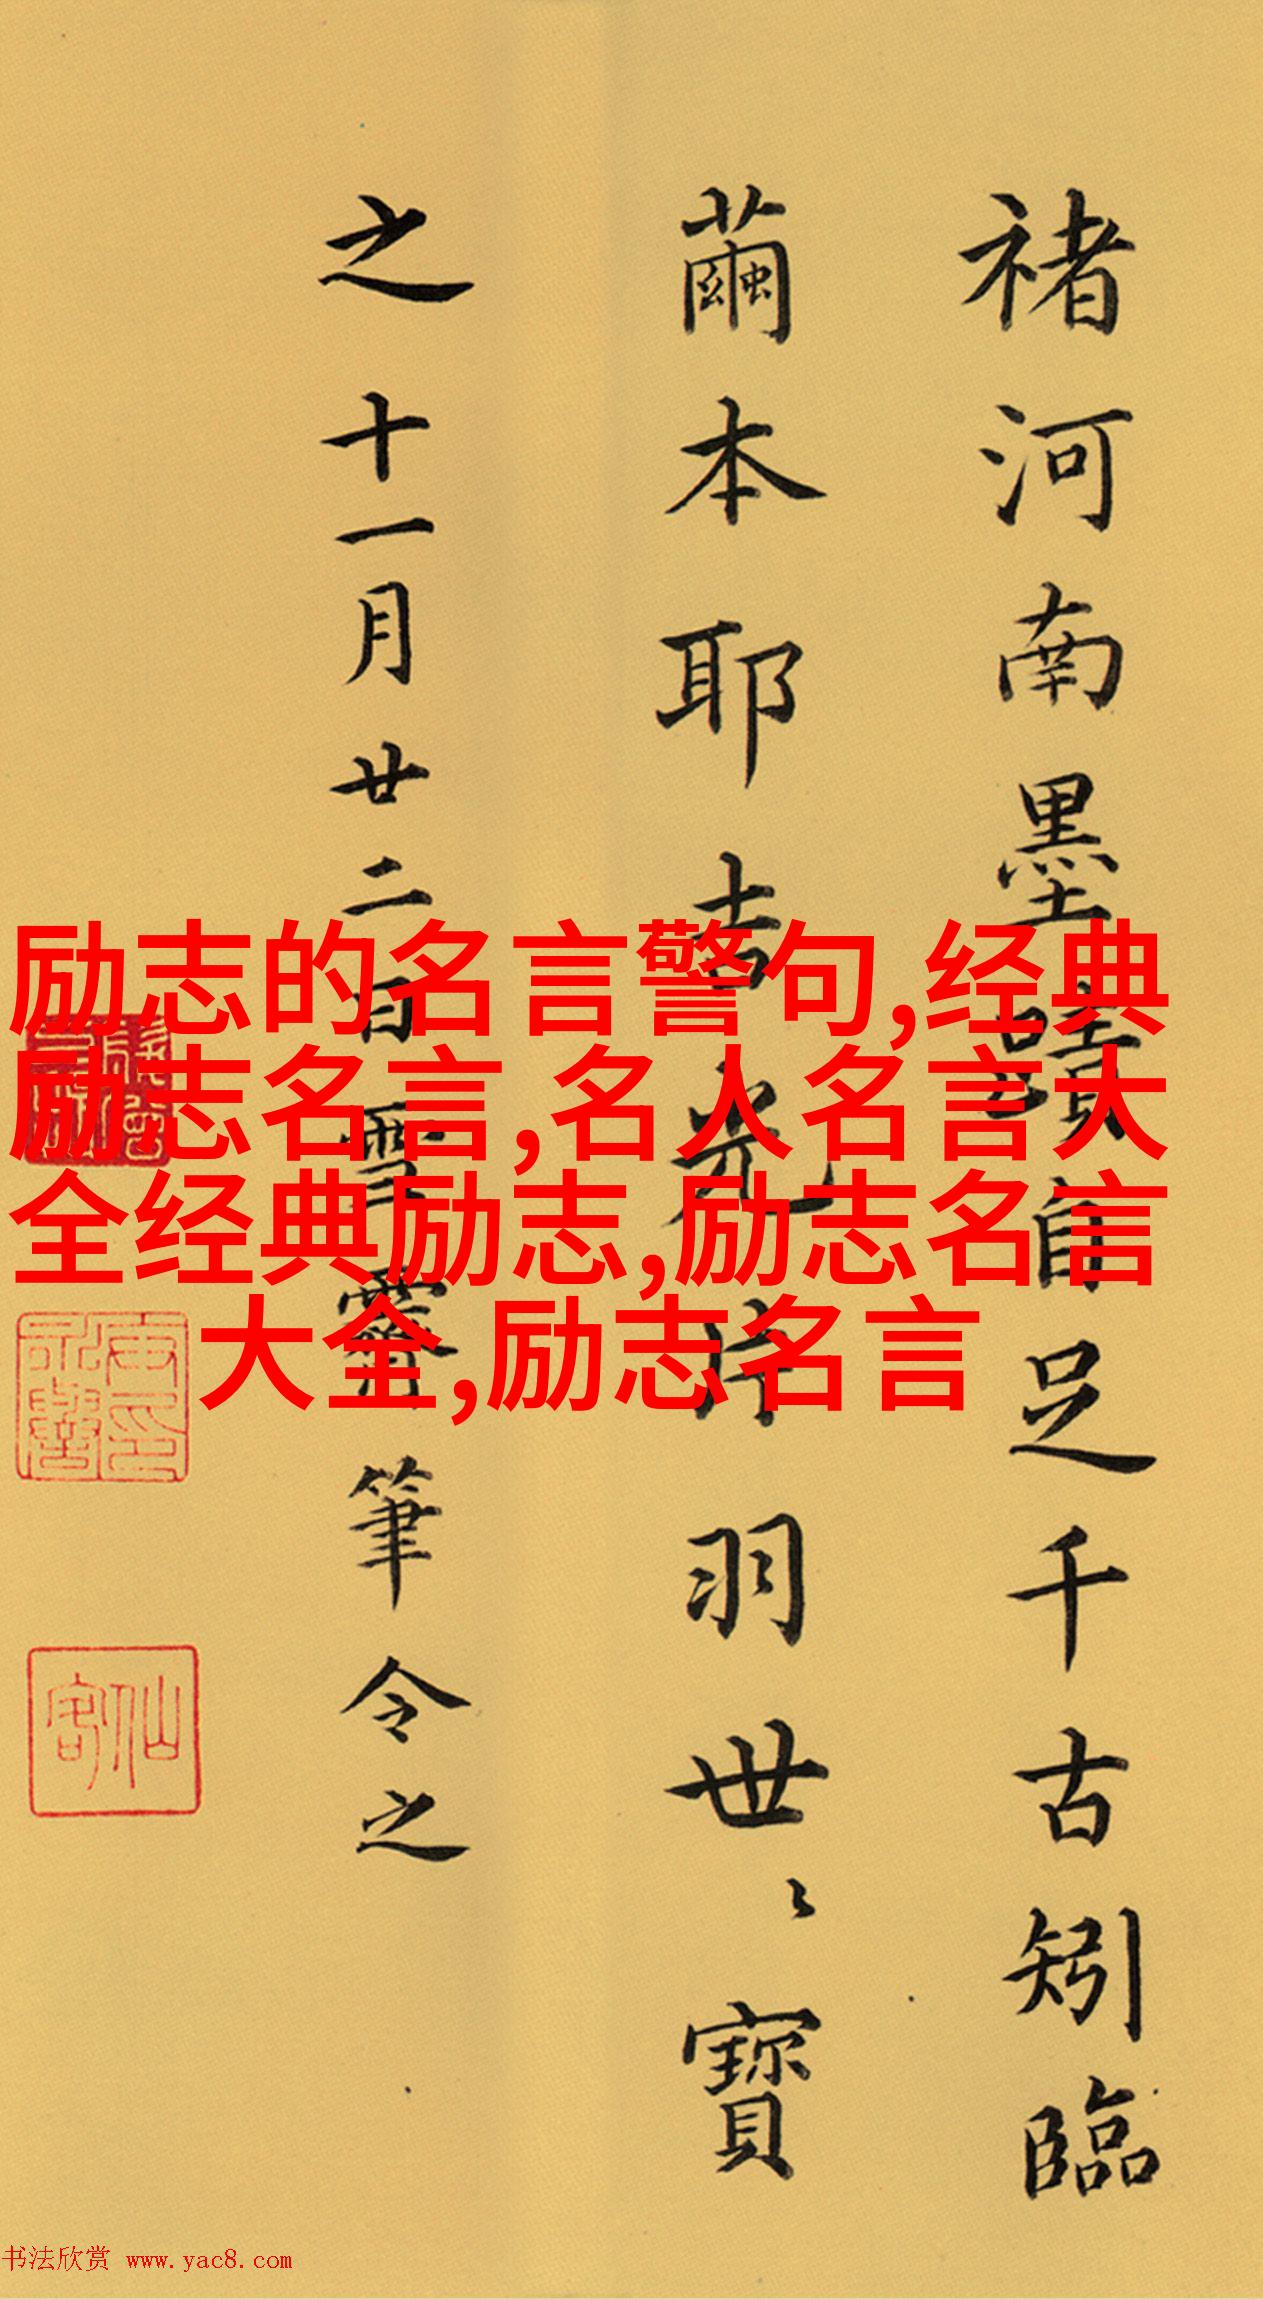 褚河南墨蹟自足千古矧臨
繭本耶吉光片羽世〻寶
之十一月廿二日雪霽筆令之
励志的名言警句,经典
励志名言,名人名言大
全经典励志,励志名言
大全,励志名言
仙客
书法欣赏 www.yac8.com